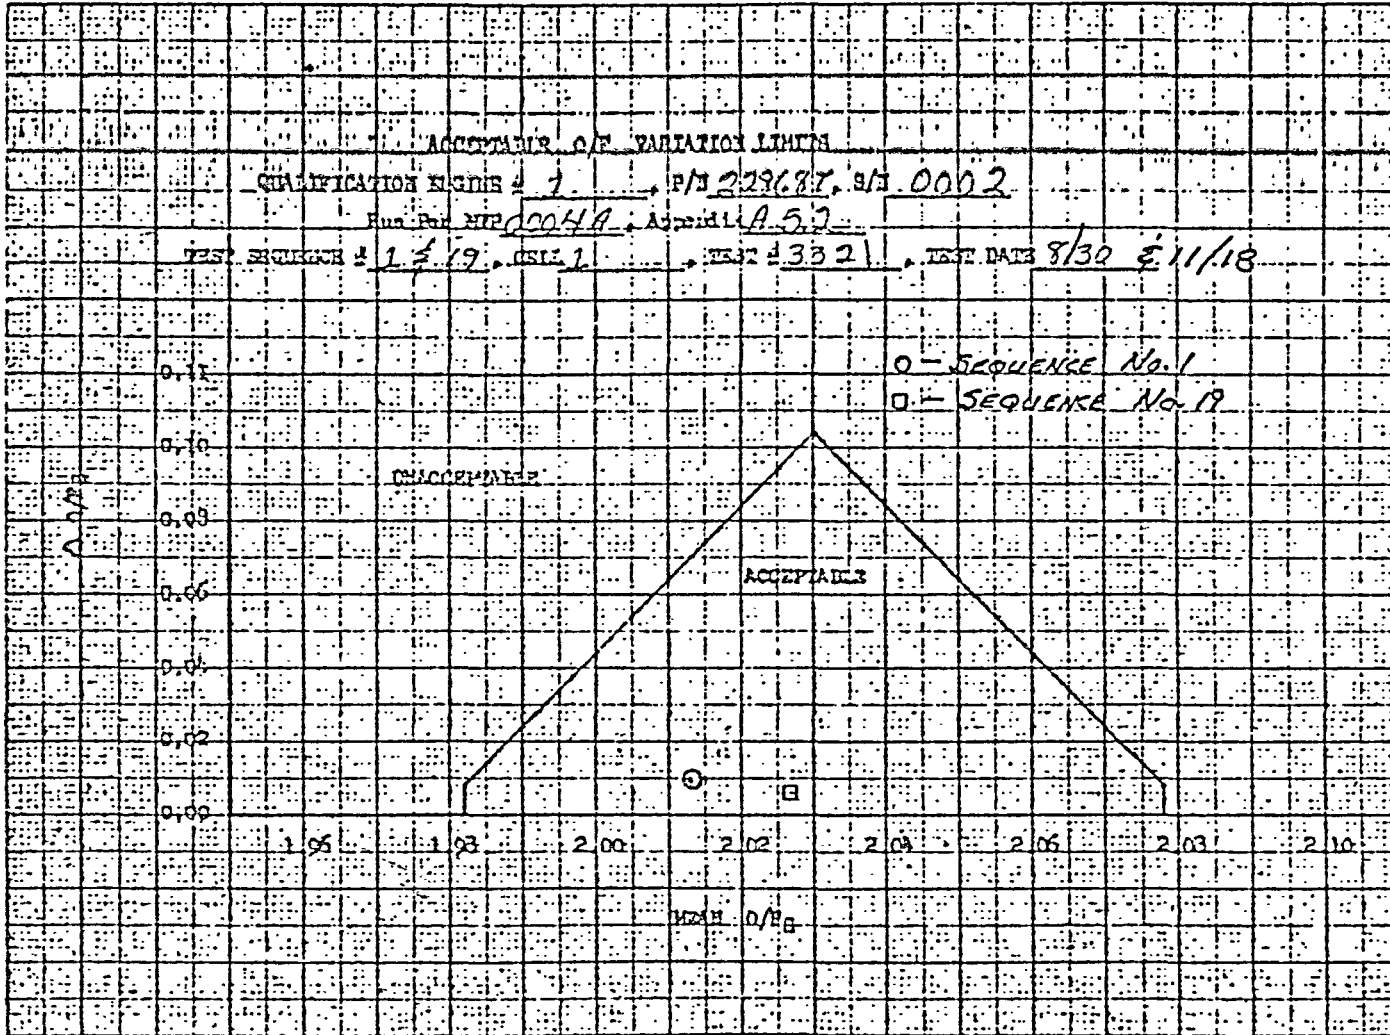 ACCEPTABLE O/F VARIATION LIMITS
QUALIFICATION ENGINE # 1, P/N 229687, S/N 0002
Run Per MTP 0004A, Appendix A.5.2
TEST SEQUENCE # 1 & 19, CELL 1, TEST # 3321, TEST DATE 8/30 & 11/18
O - SEQUENCE No. 1
□ - SEQUENCE No. 19
0.11
0.10
UNACCEPTABLE
0.08
ACCEPTABLE
0.06
0.04
0.02
0.00
1.96 1.98 2.00 2.02 2.04 2.06 2.08 2.10
MEAN O/F